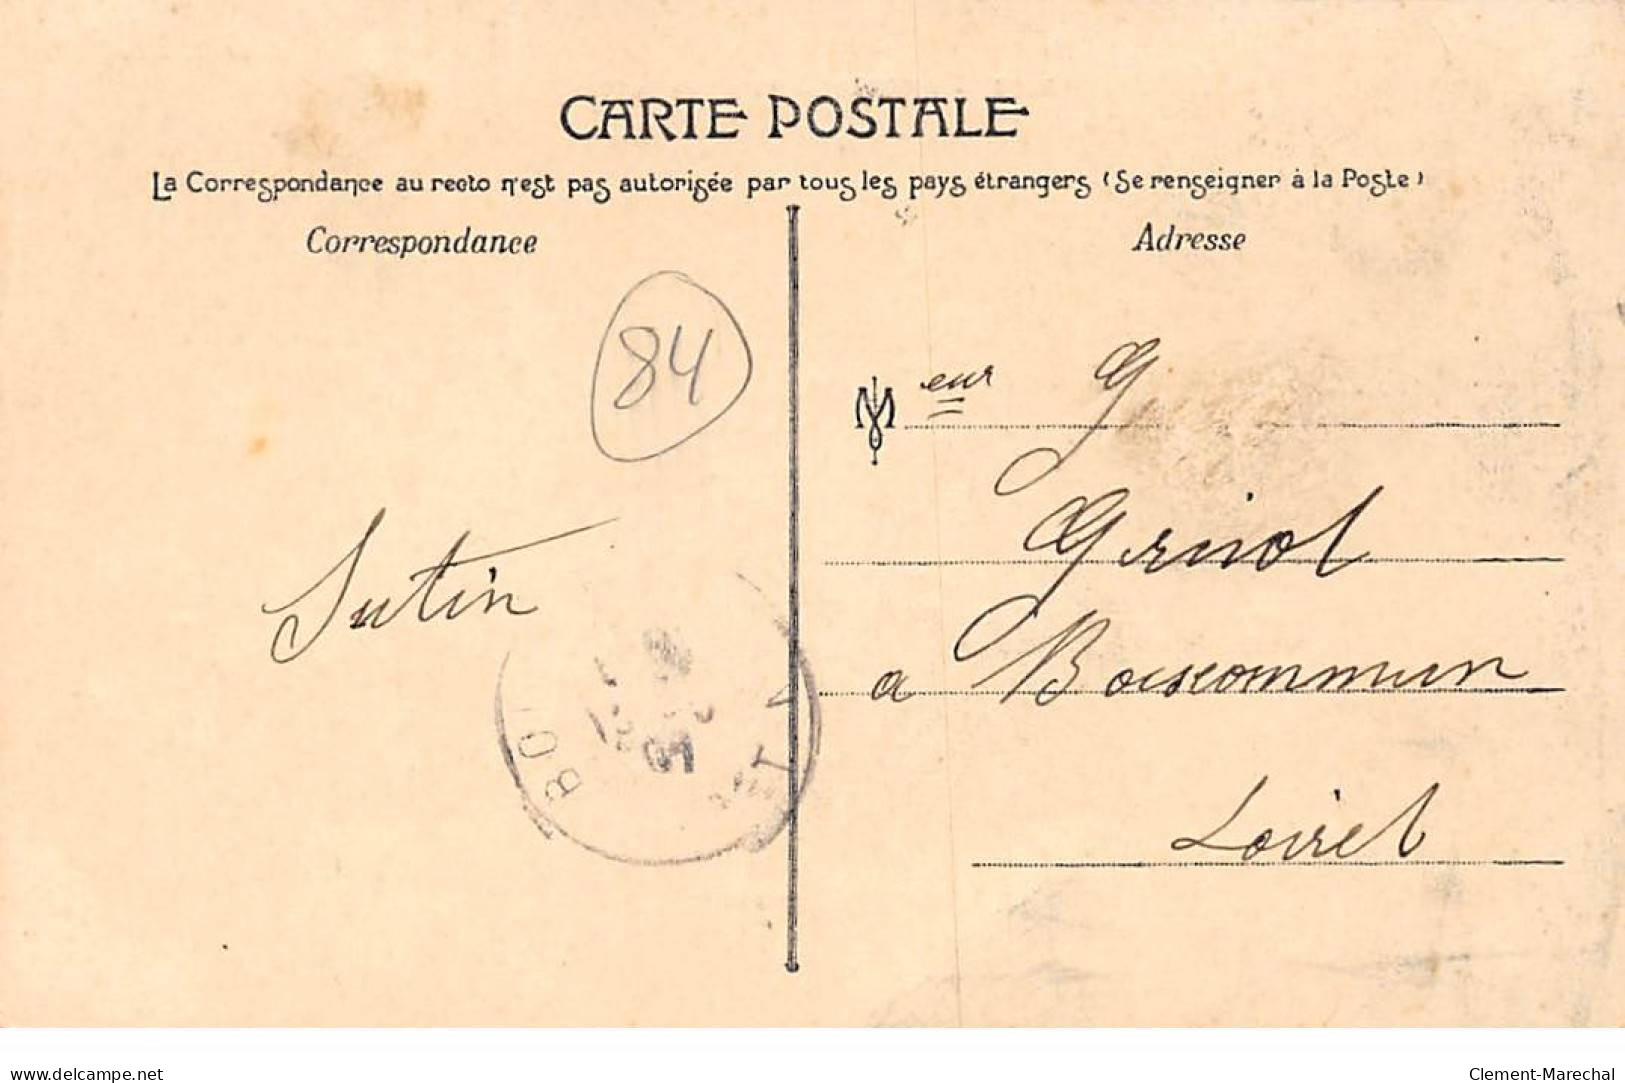 CARTE POSTALE
La Correspondance au recto n'est pas autorisée par tous les pays étrangers (Se renseigner à la Poste)
Correspondance
Adresse
84
Meur G
Griviot
Sutin
a Boiscommun
Loiret
BO
07
delcampe.net
Clement-Marechal